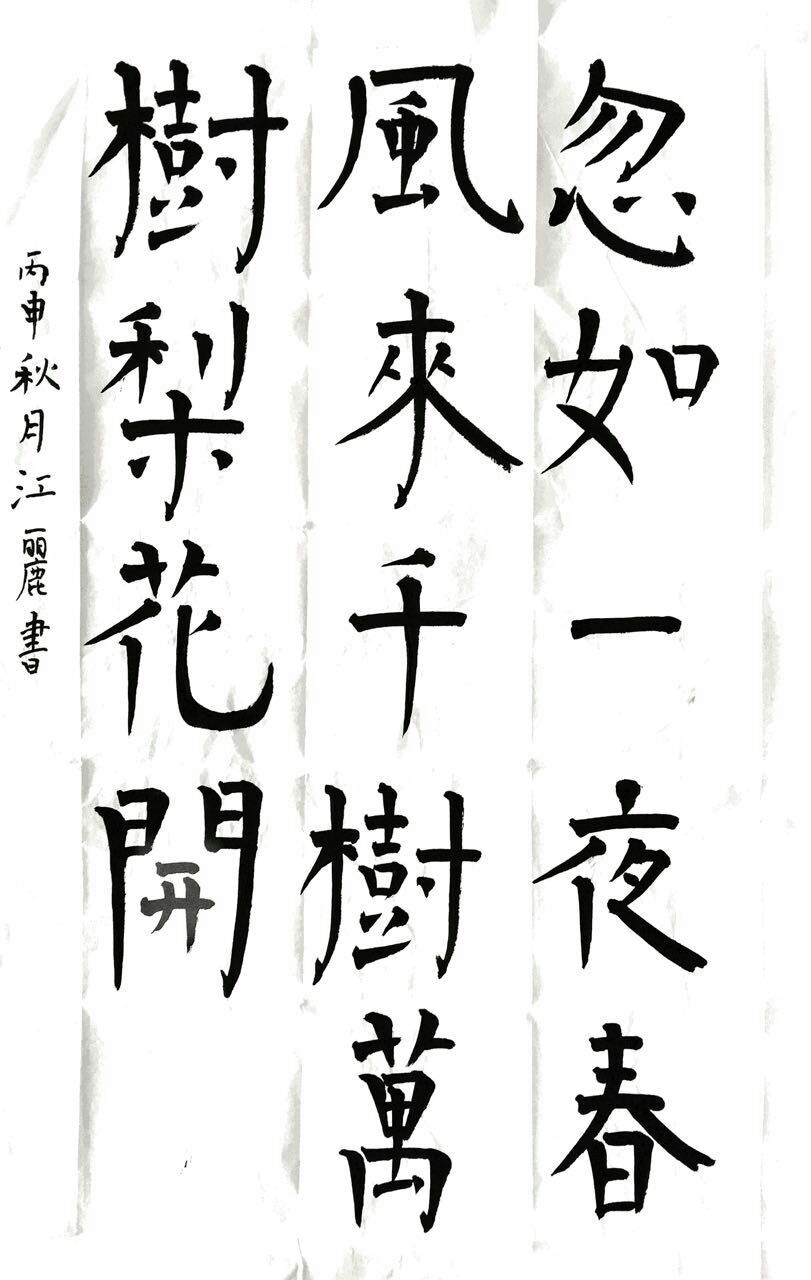 忽如一夜春
風來千樹萬
樹梨花開
丙申秋月江麗書